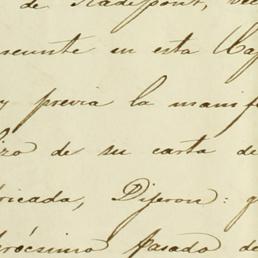 de Radepont, vec
resunte en esta Cap
y previa la manif
izo de su carta de
bricada, Dijeron: q
prócsimo pasado de